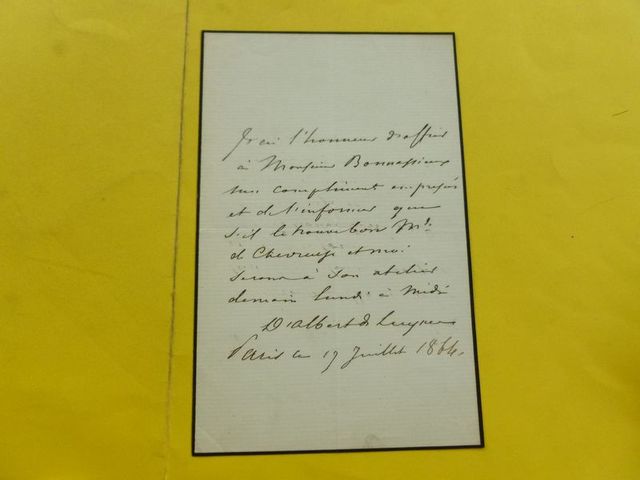 J'ai l'honneur d'offrir
à Monsieur Bonnassieux
mes compliments empressés
et de l'informer que
s'il le trouve bon Mde
de Chevreuse et moi
serons à son atelier
demain lundi à midi
D'albert de Luynes
Paris ce 17 Juillet 1864.